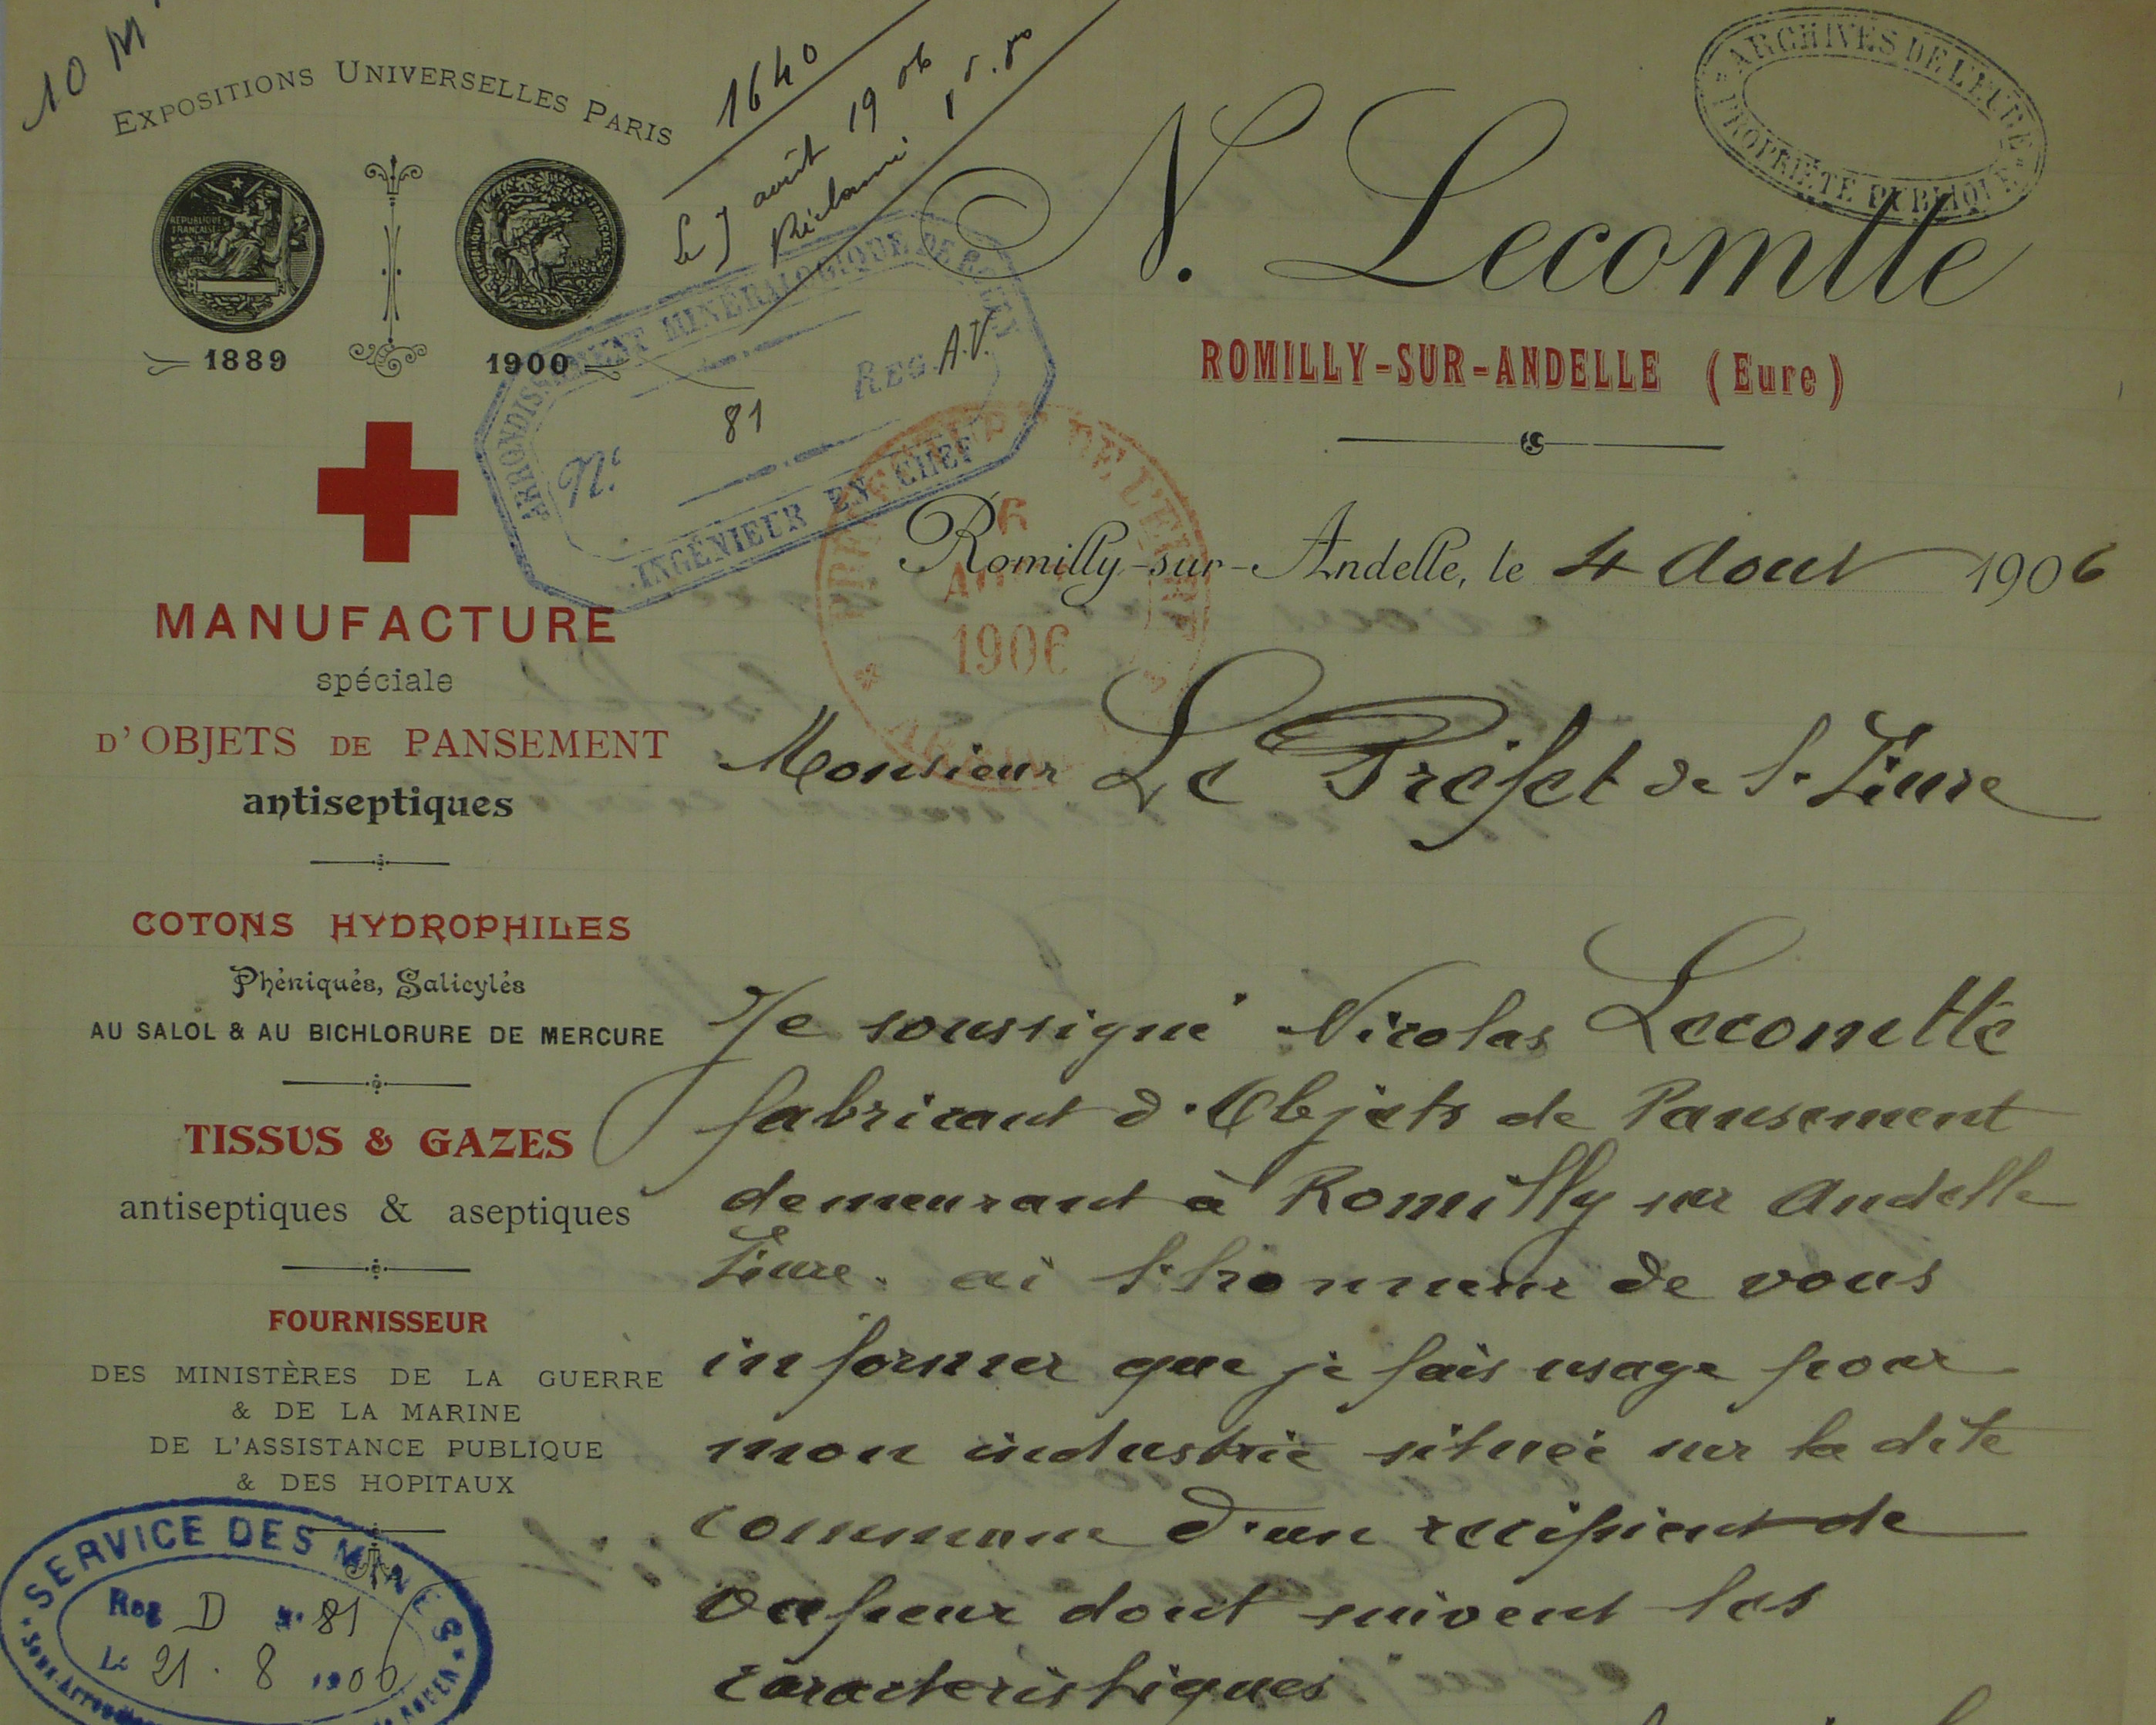 10 M
EXPOSITIONS UNIVERSELLES PARIS
REPUBLIQUE
FRANÇAISE
1889
1900
1640
Le 7 août 1906
Réclamé
ARCHIVES DE L'EURE
PROPRIÉTÉ PUBLIQUE
N. Lecomtte
ROMILLY-SUR-ANDELLE (Eure)
ARRONDISSEMENT MINÉRALOGIQUE DE ROUEN
REG. A.V.
N° 81
INGÉNIEUR EN CHEF
PREFECTURE DE L'EURE
6
AOUT
1906
Romilly-sur-Andelle, le 4 Aout 1906
MANUFACTURE
spéciale
D'OBJETS DE PANSEMENT
antiseptiques
COTONS HYDROPHILES
Phéniqués, Salicylés
AU SALOL & AU BICHLORURE DE MERCURE
TISSUS & GAZES
antiseptiques & aseptiques
FOURNISSEUR
DES MINISTÈRES DE LA GUERRE
& DE LA MARINE
DE L'ASSISTANCE PUBLIQUE
& DES HOPITAUX
SERVICE DES MINES
Reg D N° 81
Le 21.8 1906
Monsieur Le Préfet de l'Eure
Je soussigné Nicolas Lecomtte
fabricant d'Objets de Pansement
demeurant à Romilly sur Andelle
Eure. ai l'honneur de vous
informer que je fais usage pour
mon industrie située sur la dite
commune d'un recipient de
vapeur dont suivent les
caracteristiques